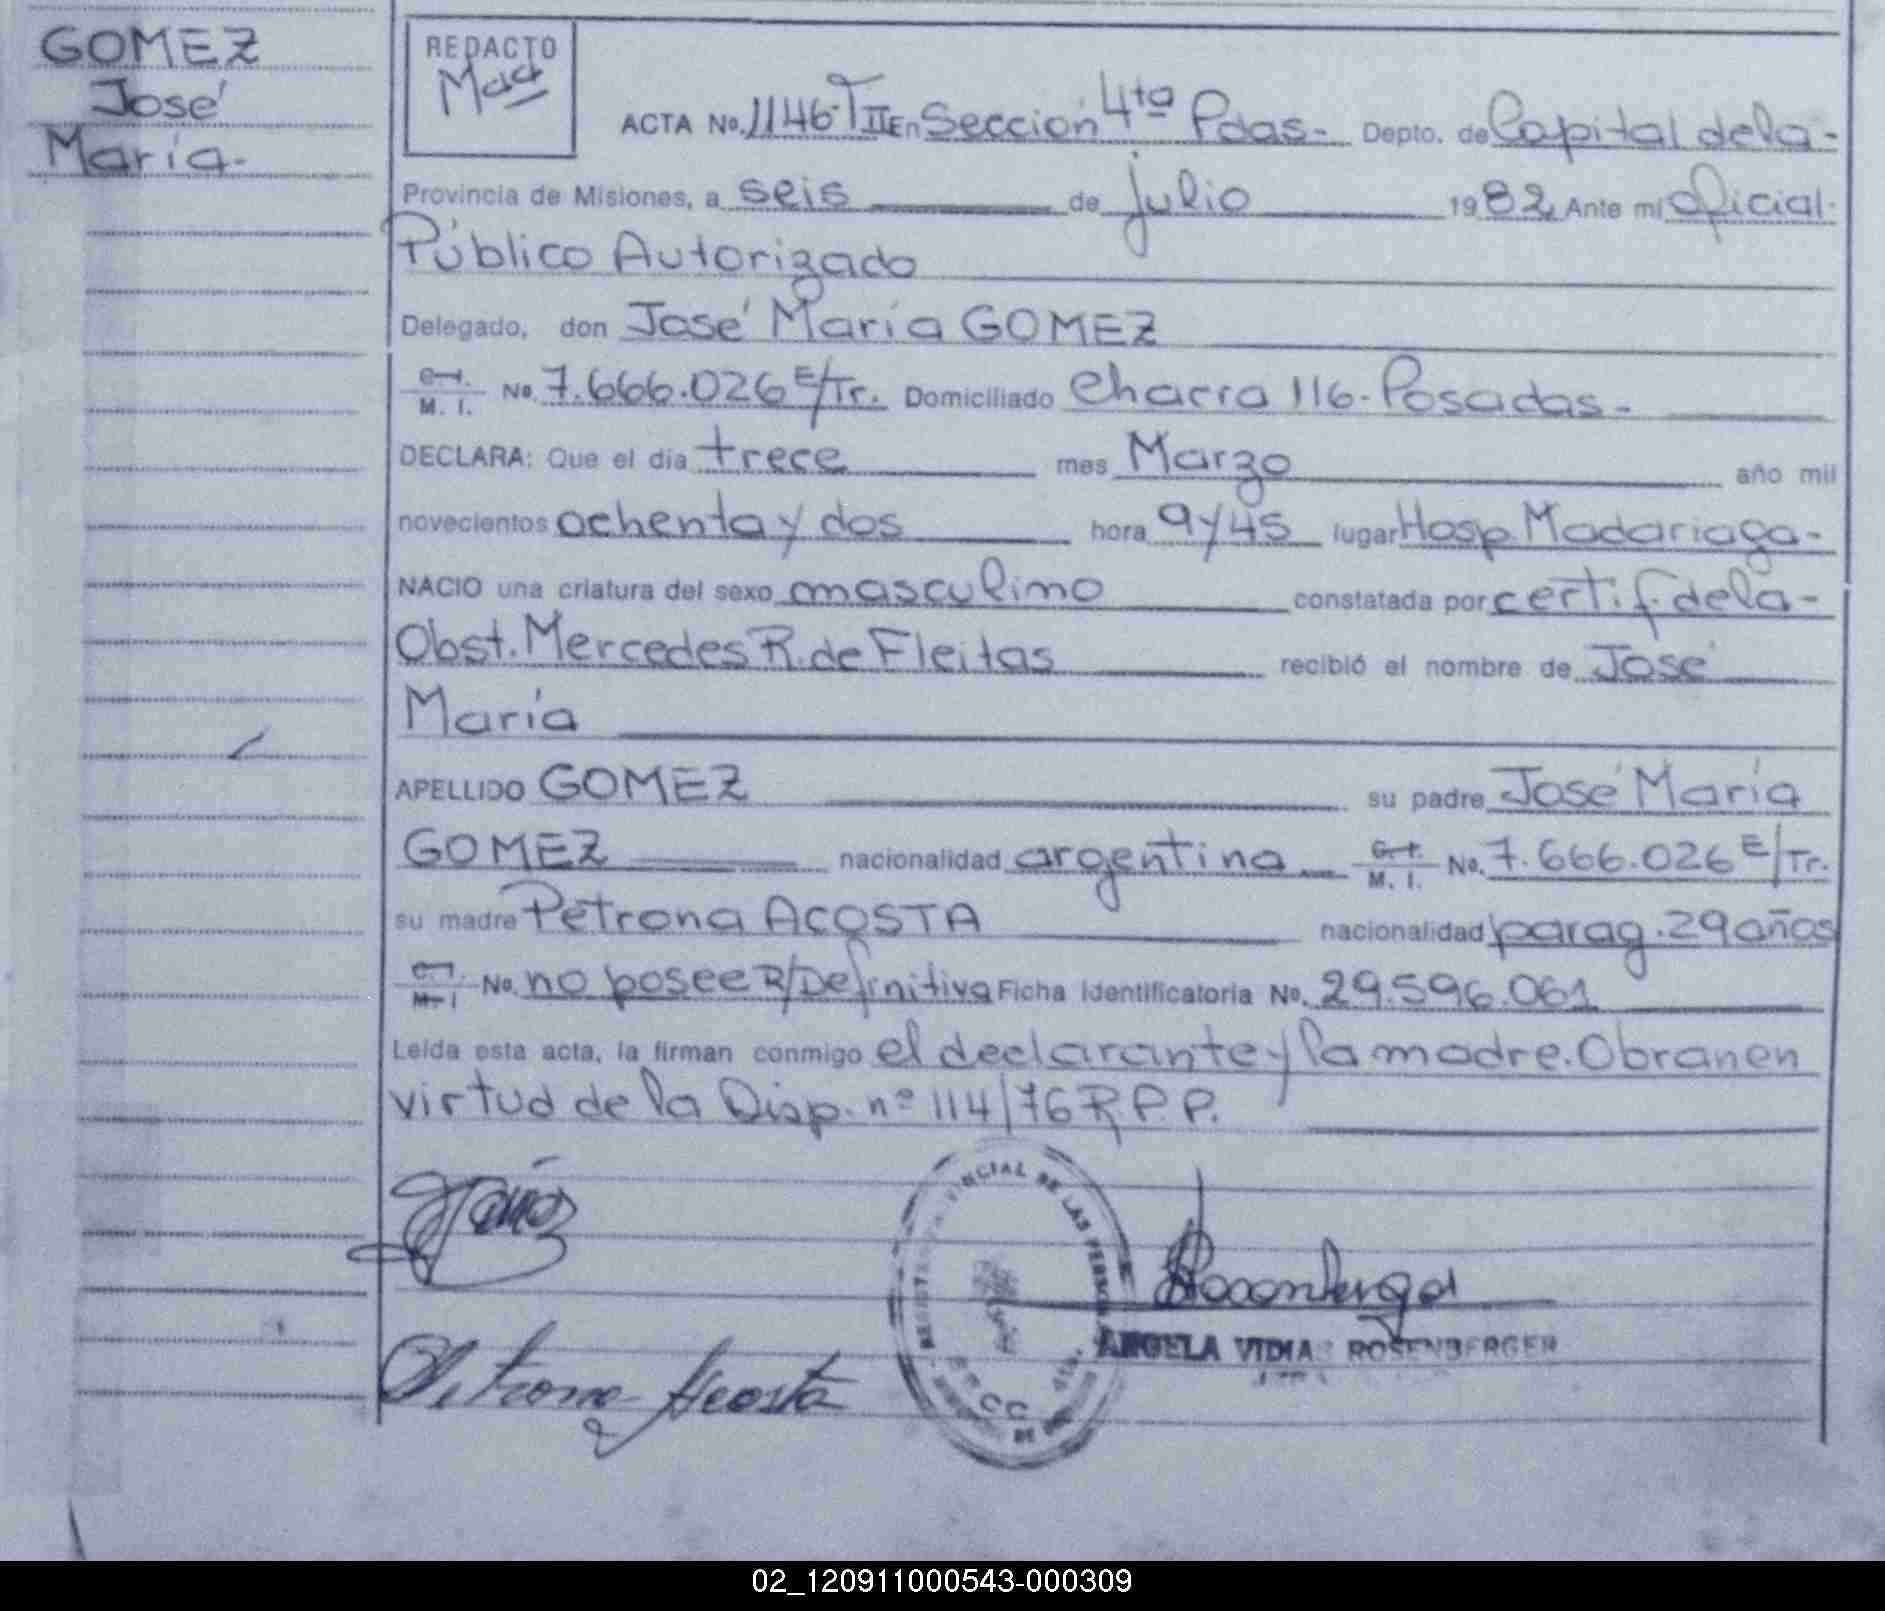 GOMEZ
José
María.
REDACTO
ACTA No. 1146-T II En Sección 4ta Pdas.- Depto. de Capital de la-
Provincia de Misiones, a seis de julio 1982 Ante mí Oficial
Público Autorizado
Delegado, don José María GOMEZ
C. I. M. I. No. 7.666.026 E/Tr. Domiciliado Chacra 116-Posadas-
DECLARA: Que el día trece mes Marzo año mil
novecientos ochenta y dos hora 9y45 lugar Hosp. Madariaga-
NACIO una criatura del sexo masculino constatada por certif. de la-
Obst. Mercedes R. de Fleitas recibió el nombre de José
María
APELLIDO GOMEZ su padre José María
GOMEZ nacionalidad argentina C. I. M. I. No. 7.666.026 E/Tr.
su madre Petrona ACOSTA nacionalidad parag. 29 años
C. I. M. I. No. no posee R/Definitiva Ficha Identificatoria No. 29.596.061
Leída esta acta, la firman conmigo el declarante y la madre. Obran en
virtud de la Disp. nº 114/76 R.P.P.
NCIAL DE LAS PERSON
Petrona Acosta
Rosenberger
ANGELA VIDIA ROSENBERGER
02_120911000543-000309